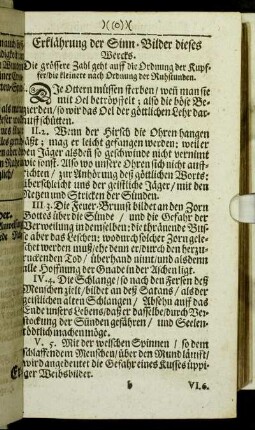 )(o)(
Erklährung der Sinn-Bilder dieses
Wercks.
Die grössere Zahl geht auff die Ordnung der Kupf-
fer/die kleinere nach Ordnung der Ruhstunden.
Die Ottern müssen sterben/ weñ man sie
mit Oel betröpffelt; also die böse Be-
gierden/so wir das Oel der göttlichen Lehr dar-
auff schütten.
II. 2. Wenn der Hirsch die Ohren hangen
läßt; mag er leicht gefangen werden; weil er
den Jäger alsdeñ so geschwinde nicht vernimt
wie sonst. Also wo unsere Ohren sich nicht auff-
richten/ zur Anhörung deß göttlichen Worts;
überschleicht uns der geistliche Jäger/mit den
Netzen und Stricken der Sünden.
III 3. Die Feuer-Brunst bildet an den Zorn
Gottes über die Sünde/ und die Gefahr der
Verweilung in demselben: die thränende Bus-
se aber das Leschen: wodurch solcher Zorn gele-
schet werden muß/ehe denn er/durch den herzu-
ruckenden Tod/ überhand nimt/und alsdenn
alle Hoffnung der Gnade in der Aschen ligt.
IV. 4. Die Schlange/so nach den Fersen deß
Menschen zielt/ bildet an deß Satans/ als der
geistlichen alten Schlangen/ Absehn auff das
Ende unsers Lebens/daß er dasselbe/durch Ver-
stockung der Sünden gefähren/ und Seelen-
tödtlich machen möge.
V. 5. Mit der welschen Spinnen/ so dem
schlaffendem Menschen/über den Mund läufft/
wird angedeutet die Gefahr eines Kusses üppi-
ger Weibsbilder.
b VI. 6.